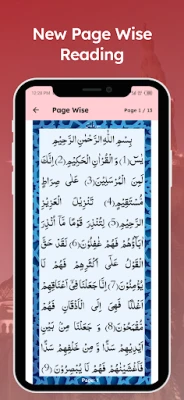 New Page Wise
Reading
12:29 PM
Page Wise
Page 1 / 13
بِسْمِ اللّٰهِ الرَّحْمٰنِ الرَّحِيْمِ
يٰسٓ(1) وَ الْقُرْاٰنِ الْحَكِيْمِ(2) اِنَّكَ
لَمِنَ الْمُرْسَلِيْنَ(3) عَلٰى صِرَاطٍ
مُّسْتَقِيْمٍ(4) تَنْزِيْلَ الْعَزِيْزِ
الرَّحِيْمِ(5) لِتُنْذِرَ قَوْمًا مَّاۤ اُنْذِرَ
اٰبَآؤُهُمْ فَهُمْ غٰفِلُوْنَ(6) لَقَدْ حَقَّ
الْقَوْلُ عَلٰۤى اَكْثَرِهِمْ فَهُمْ لَا
يُؤْمِنُوْنَ(7) اِنَّا جَعَلْنَا فِيْۤ اَعْنَاقِهِمْ
اَغْلٰلًا فَهِيَ اِلَى الْاَذْقَانِ فَهُمْ
مُّقْمَحُوْنَ(8) وَ جَعَلْنَا مِنْۢ بَيْنِ
اَيْدِيْهِمْ سَدًّا وَّ مِنْ خَلْفِهِمْ سَدًّا
فَاَغْشَيْنٰهُمْ فَهُمْ لَا يُبْصِرُوْنَ(9)